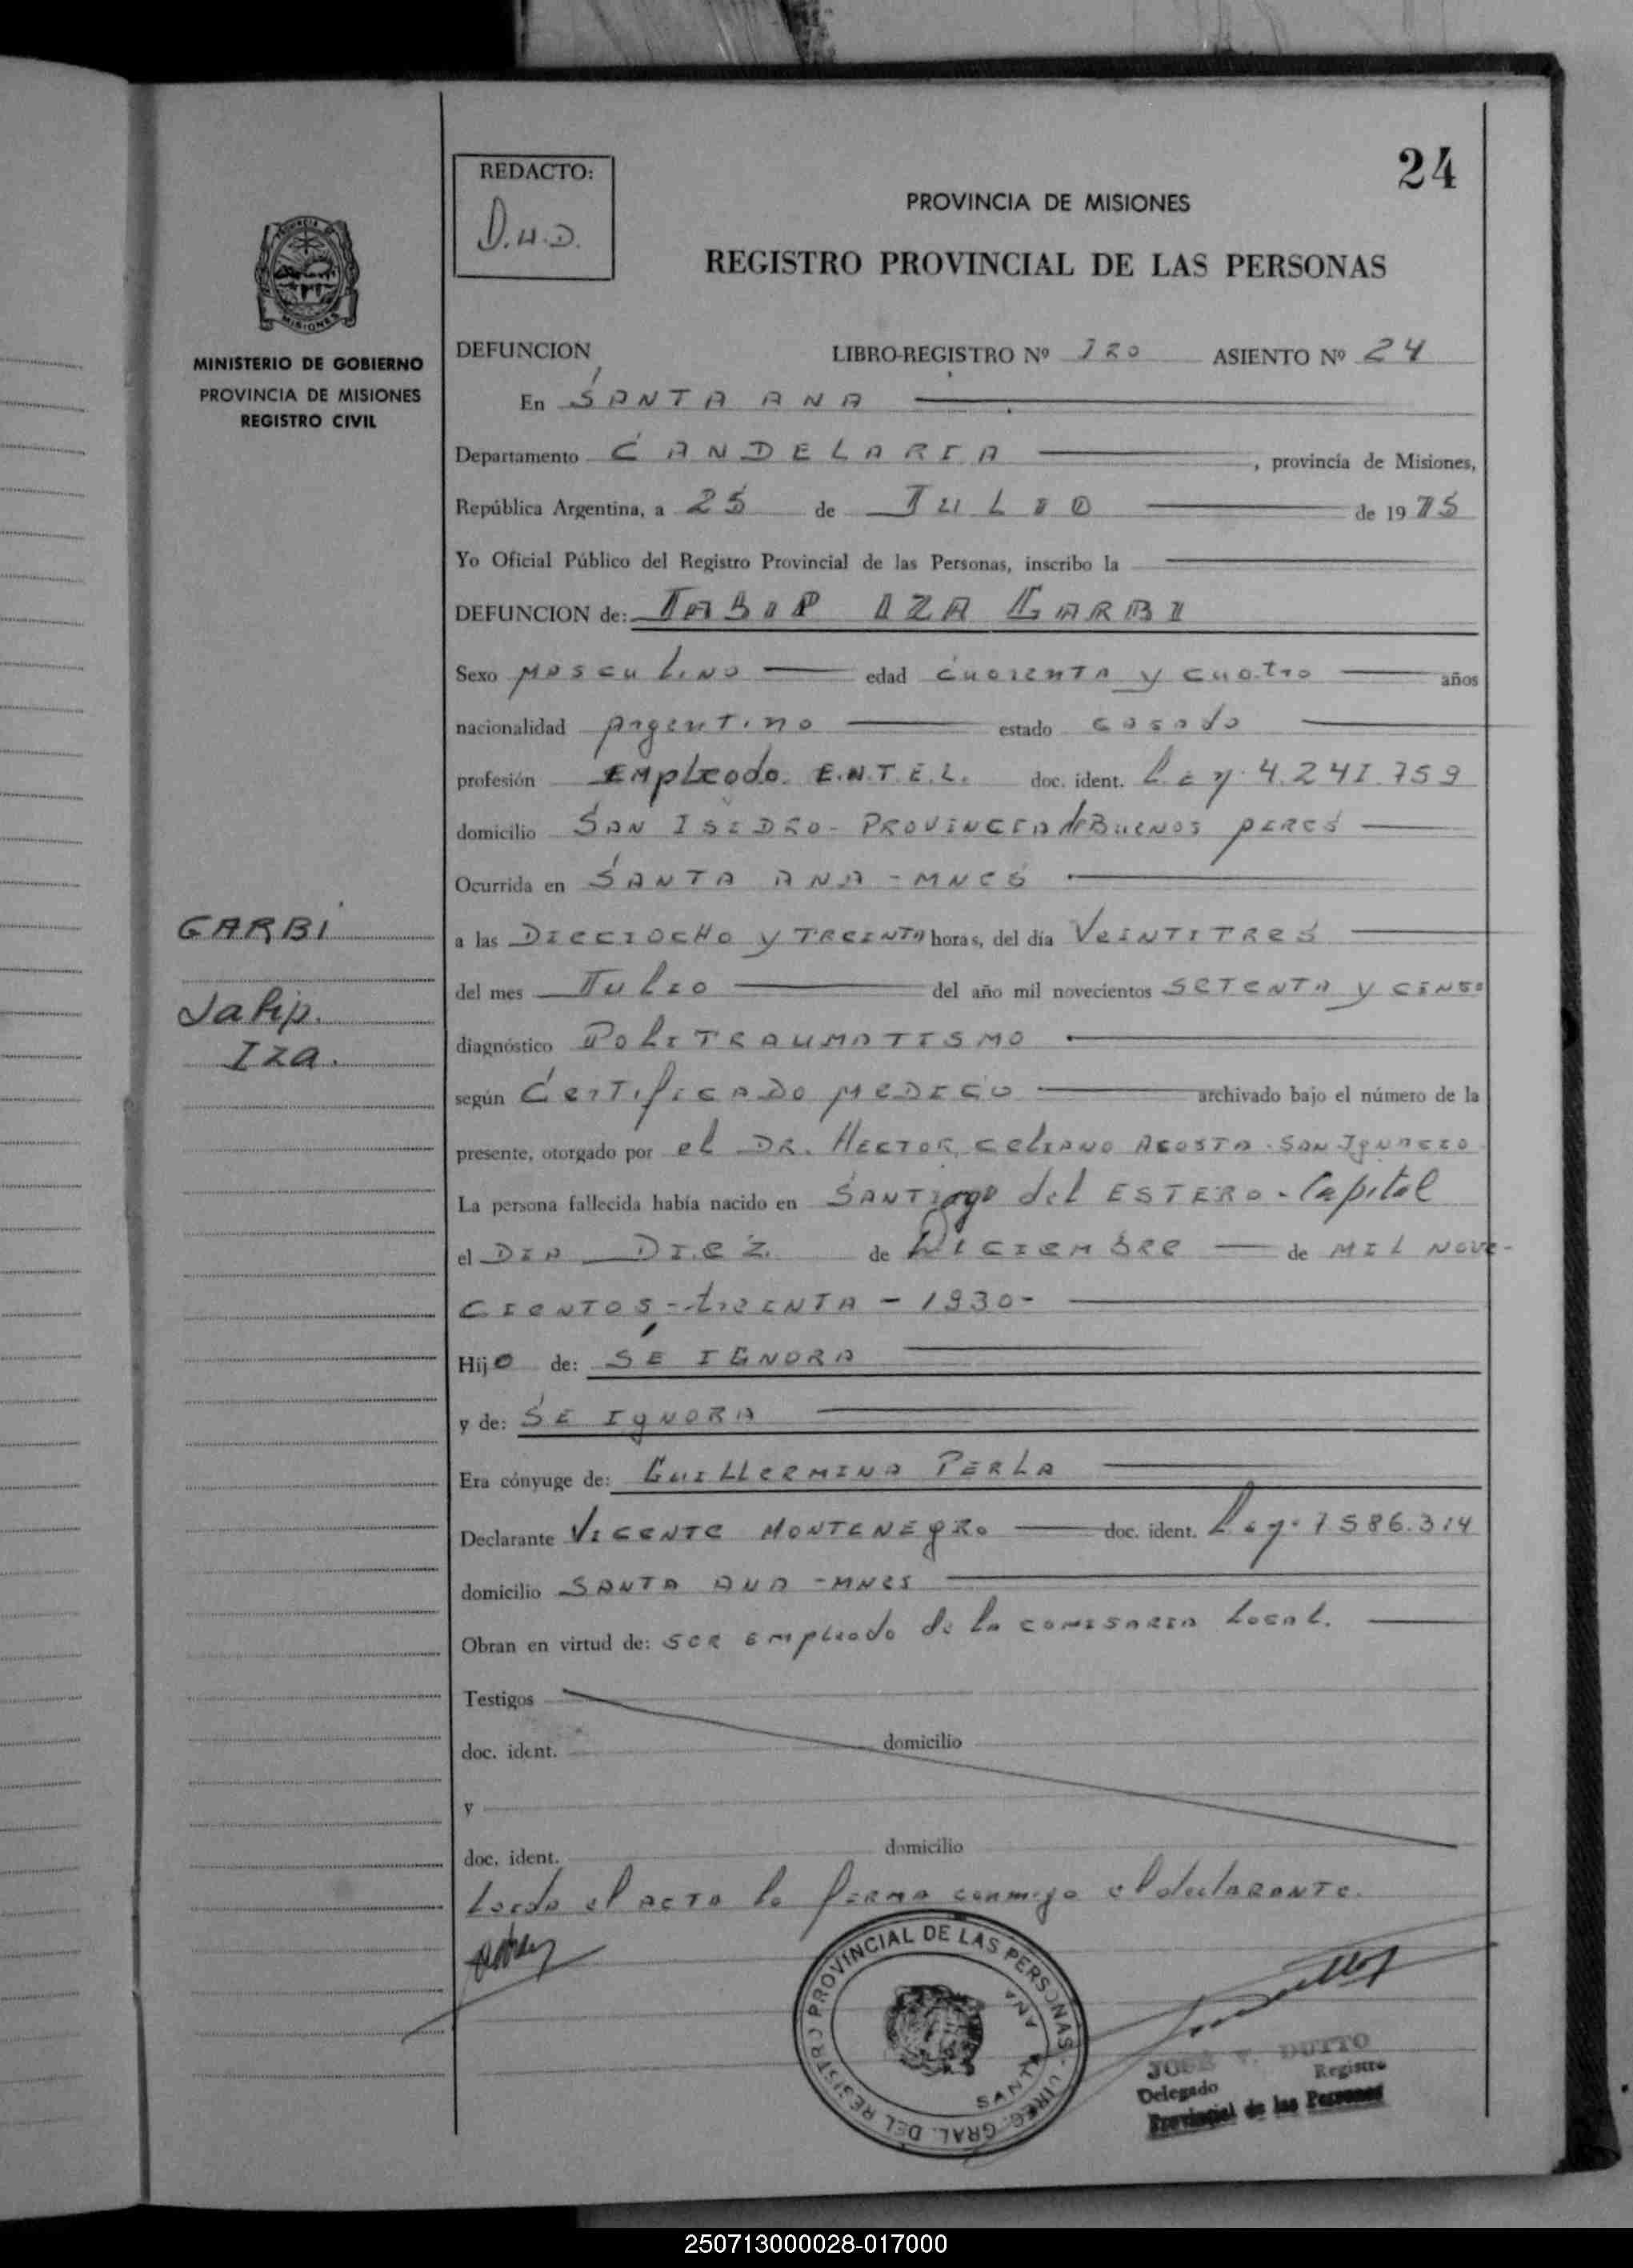 24
REDACTO:
D.H.D.
PROVINCIA DE MISIONES
REGISTRO PROVINCIAL DE LAS PERSONAS
PROVINCIA DE
MISIONES
MINISTERIO DE GOBIERNO
PROVINCIA DE MISIONES
REGISTRO CIVIL
DEFUNCION LIBRO-REGISTRO Nº 120 ASIENTO Nº 24
En SANTA ANA
Departamento CANDELARIA , provincia de Misiones,
República Argentina, a 25 de JULIO de 1975
Yo Oficial Público del Registro Provincial de las Personas, inscribo la
DEFUNCION de: IZA GARBI
Sexo MASCULINO edad cuarenta y cuatro años
nacionalidad Argentino estado casado
profesión Empleado E.N.T.E.L. doc. ident. L.E.Nº 4.241.759
domicilio SAN ISIDRO - PROVINCIA de BUENOS AIRES
Ocurrida en SANTA ANA - MNES
a las DIECIOCHO y TREINTA horas, del día VEINTITRES
del mes JULIO del año mil novecientos SETENTA y CINCO
diagnóstico POLITRAUMATISMO
según Certificado MEDICO archivado bajo el número de la
presente, otorgado por el DR. HECTOR CELIANO ACOSTA - SAN IGNACIO
La persona fallecida había nacido en SANTIAGO del ESTERO - Capital
el DIA DIEZ de DICIEMBRE de MIL NOVE-
CIENTOS - treINTA - 1930-
Hijo de: SE IGNORA
y de: SE IGNORA
Era cónyuge de: GUILLERMINA PERLA
Declarante VICENTE MONTENEGRO doc. ident. 7.586.314
domicilio SANTA ANA - MNES
Obran en virtud de: SER empleado de la COMISARIA Local.
Testigos
doc. ident. domicilio
y
doc. ident. domicilio
Leida el ACTA la FIRMA conmigo el declARANTE.
GARBI
Iza.
REGISTRO PROVINCIAL DE LAS PERSONAS - DIREC. GRAL. DEL
SANTA ANA
JOSÉ V. DUTTO
Delegado Registro
Provincial de las Personas
250713000028-017000